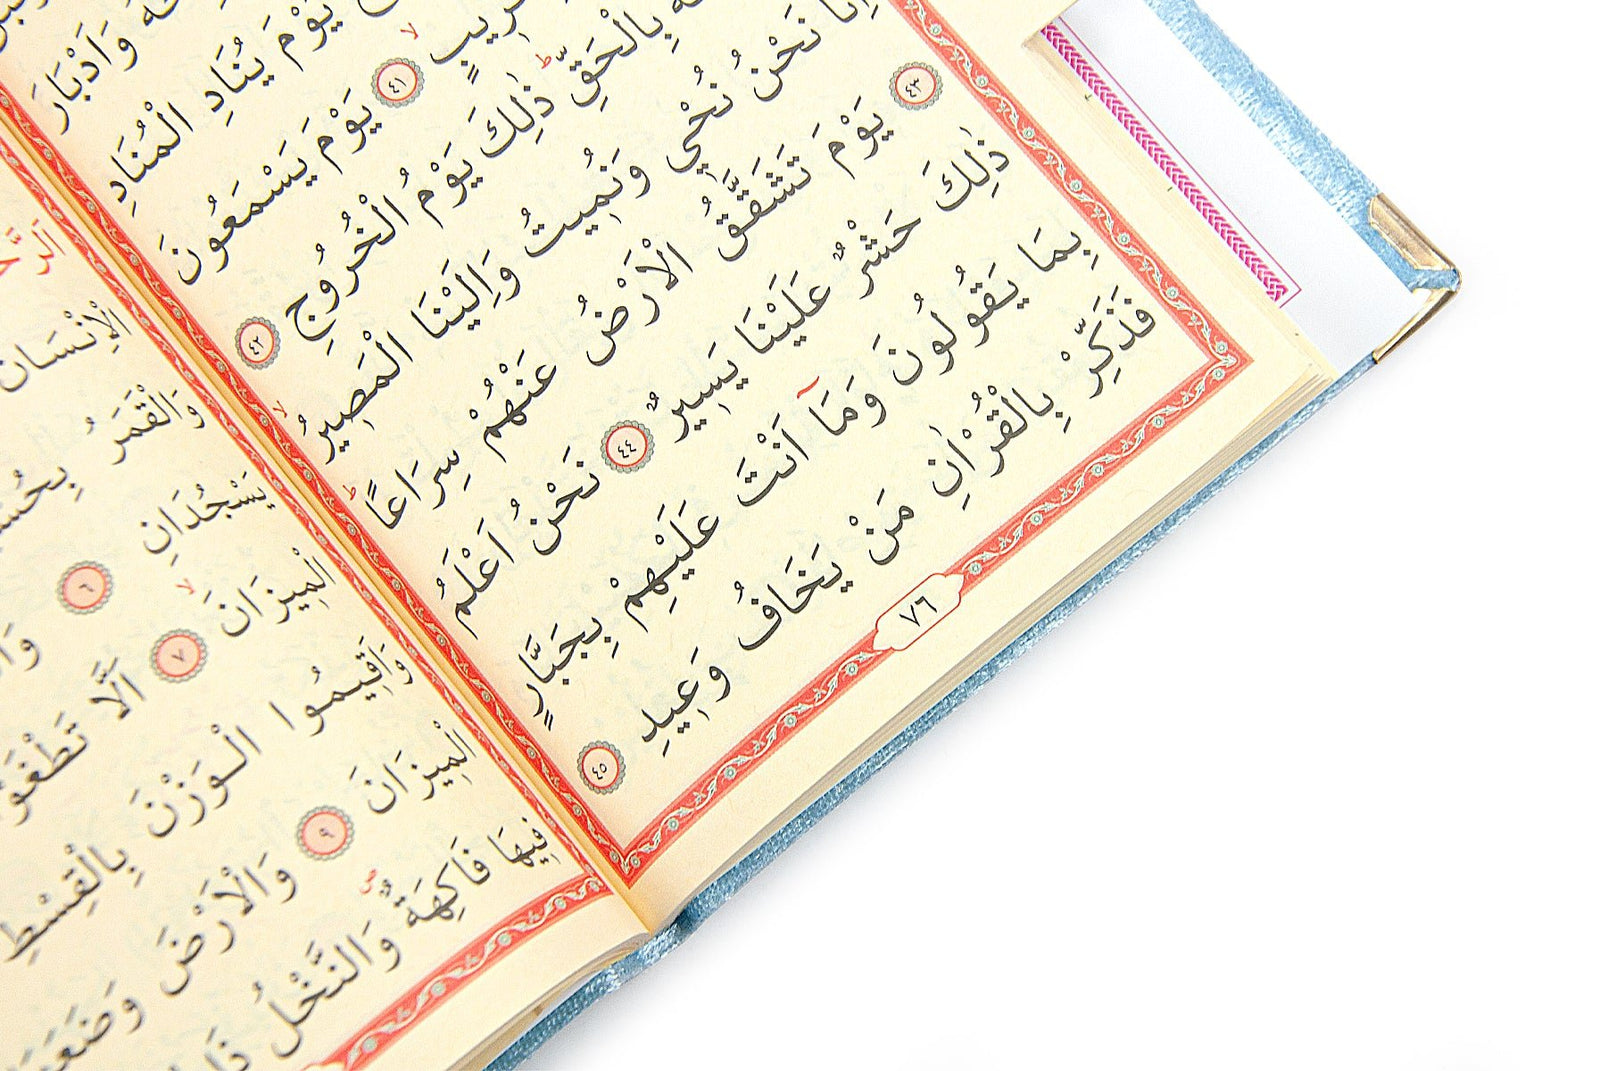 وَاَدْبَارَ
يَوْمَ يُنَادِ الْمُنَادِ
قَرِيبٍ ۙ ﴿٤١﴾ يَوْمَ يَسْمَعُونَ
بِالْحَقِّ ۜ ذٰلِكَ يَوْمُ الْخُرُوجِ ﴿٤٢﴾
اِنَّا نَحْنُ نُحْيٖ وَنُمٖيتُ وَاِلَيْنَا الْمَصٖيرُ ۙ
﴿٤٣﴾ يَوْمَ تَشَقَّقُ الْاَرْضُ عَنْهُمْ سِرَاعًا ۜ
ذٰلِكَ حَشْرٌ عَلَيْنَا يَسٖيرٌ ﴿٤٤﴾ نَحْنُ اَعْلَمُ
بِمَا يَقُولُونَ وَمَٓا اَنْتَ عَلَيْهِمْ بِجَبَّارٍ
فَذَكِّرْ بِالْقُرْاٰنِ مَنْ يَخَافُ وَعٖيدِ ﴿٤٥﴾
٧٦
الْاِنْسَانَ
وَالْقَمَرُ
يَسْجُدَانِ ﴿٦﴾
الْمٖيزَانَ ۙ ﴿٧﴾ اَلَّا تَطْغَوْا
وَاَقٖيمُوا الْوَزْنَ بِالْقِسْطِ
الْمٖيزَانَ ﴿٩﴾ وَالْاَرْضَ وَضَعَهَا
فٖيهَا فَاكِهَةٌ ۖ وَالنَّخْلُ